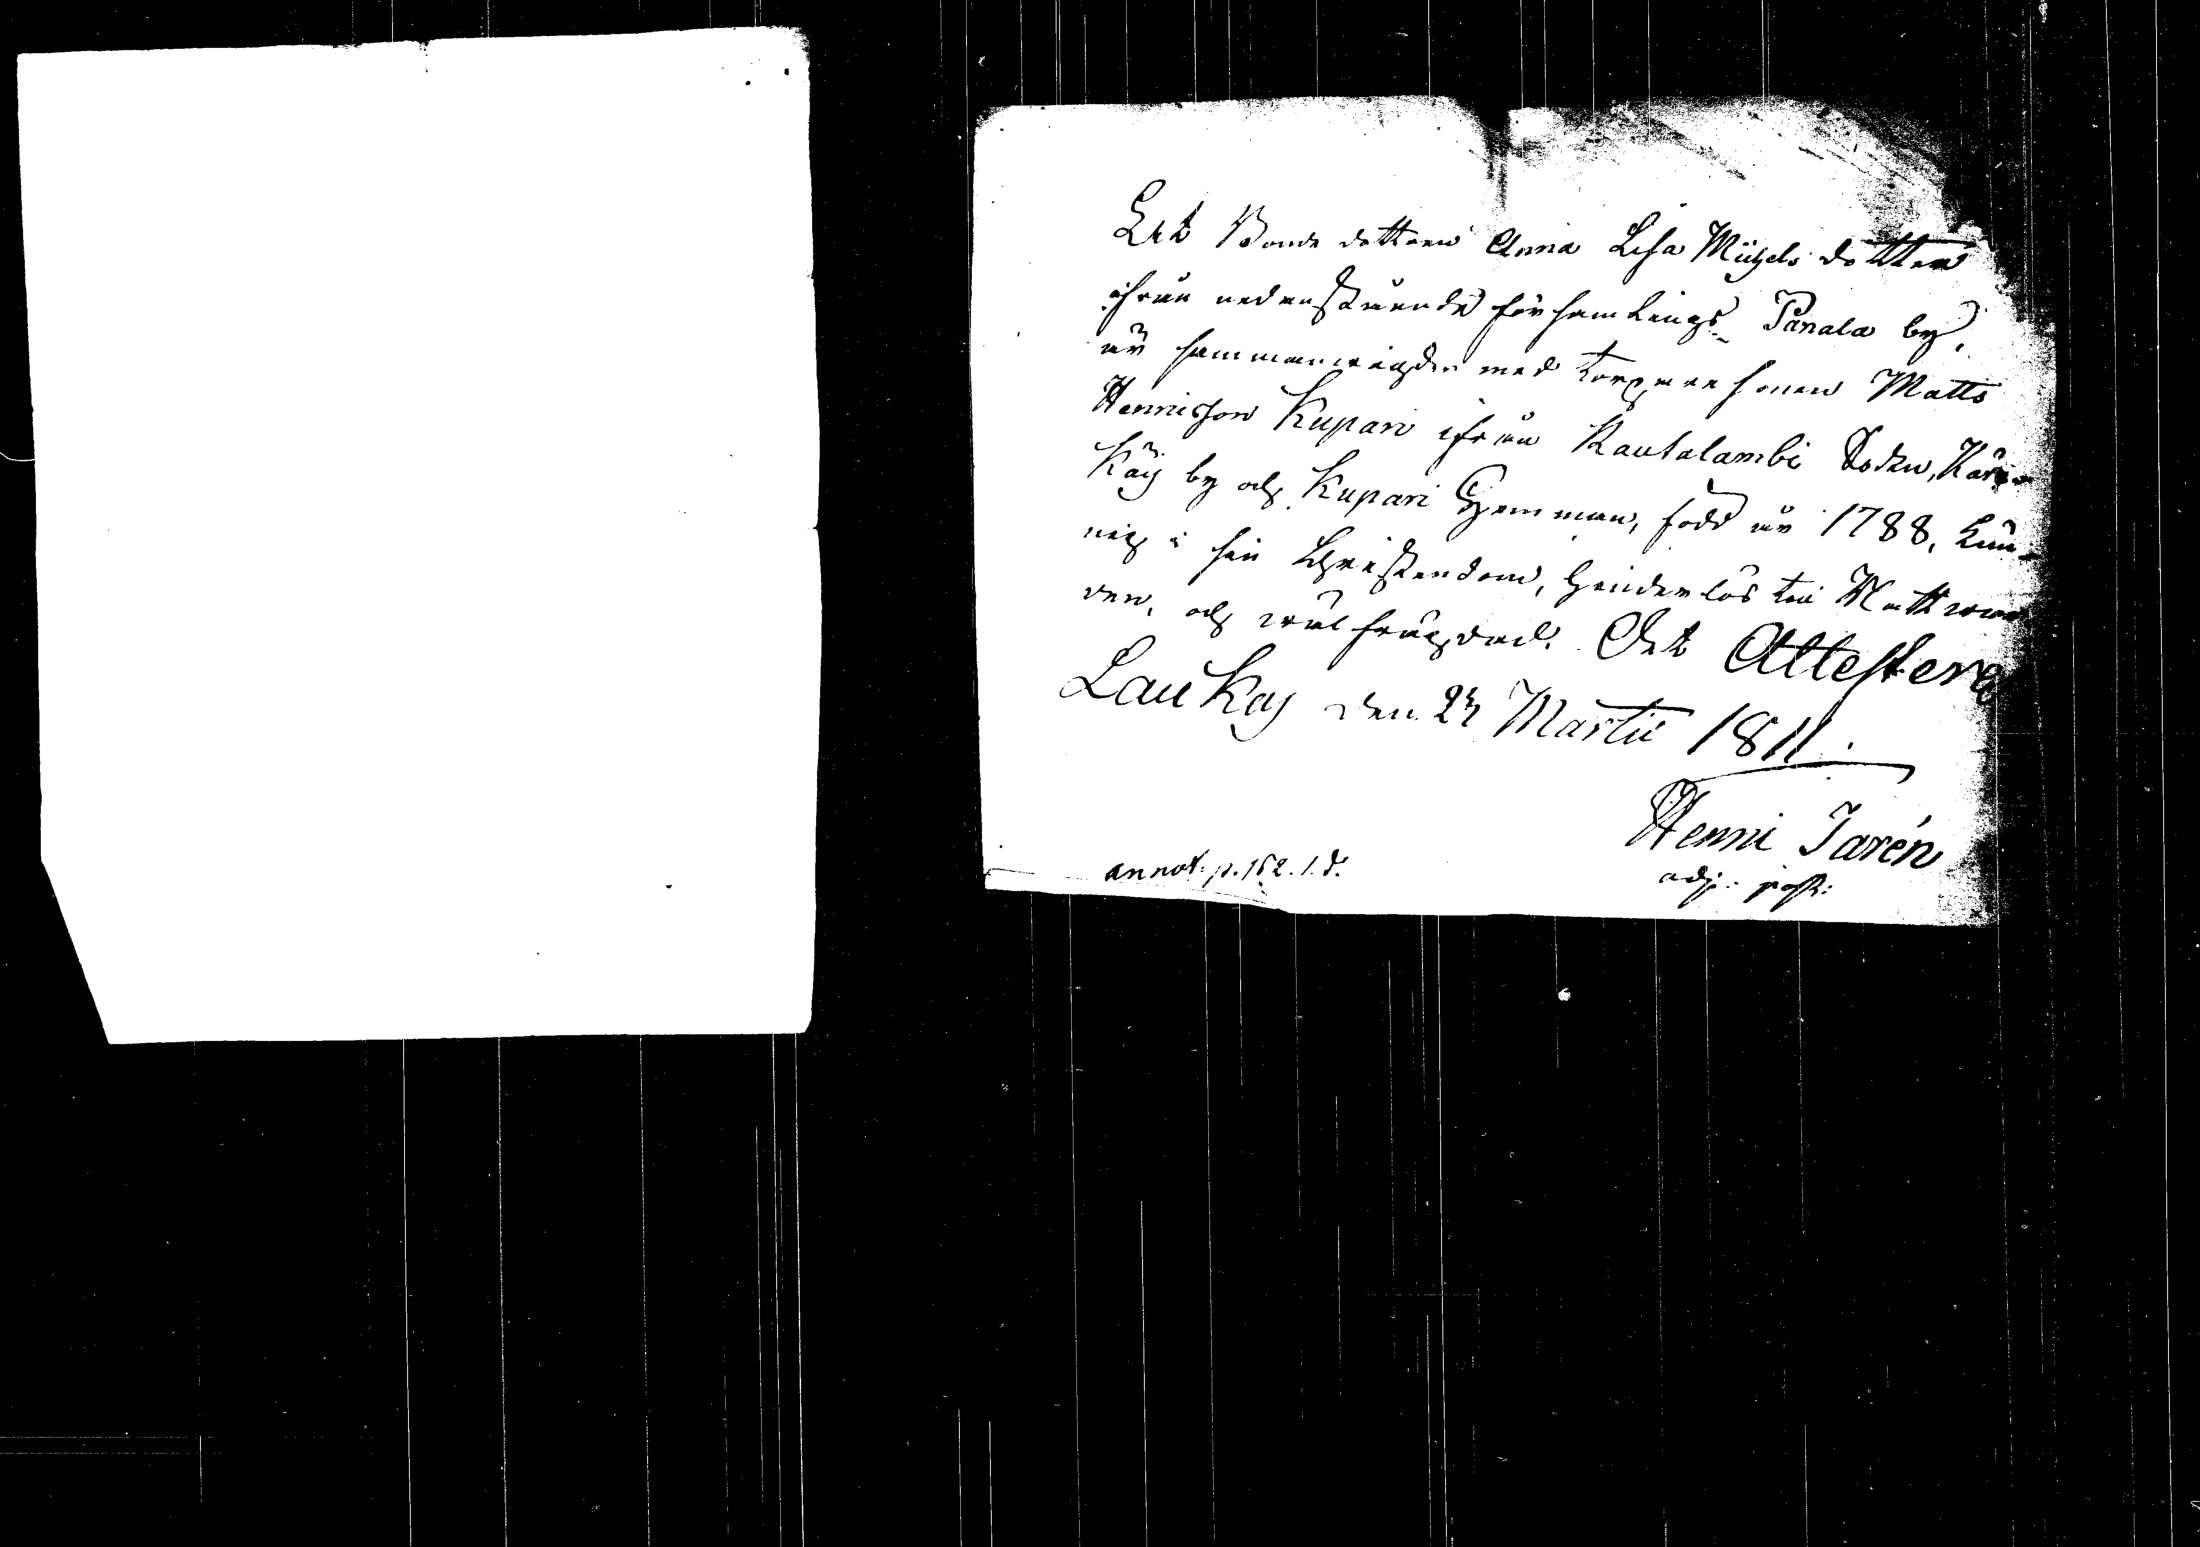 Att Bonde dottren Anna Lisa Michels dotter
ifrån nedanstående församlings Panala by,
är sammanvigder med torpare sonen Matts
Hennisson Kupari ifrån Rautalambi Sokn, Kär-
käj by och Kupari Hemman, född år 1788, kun-
nig i sin Christendom, hinderlös till Nattvar-
den, och välfrägdad. Det Attestera
Laukas den 24 Martii 1811.
Henni Jarén
adj. past:
annot. p. 152. 1. d.